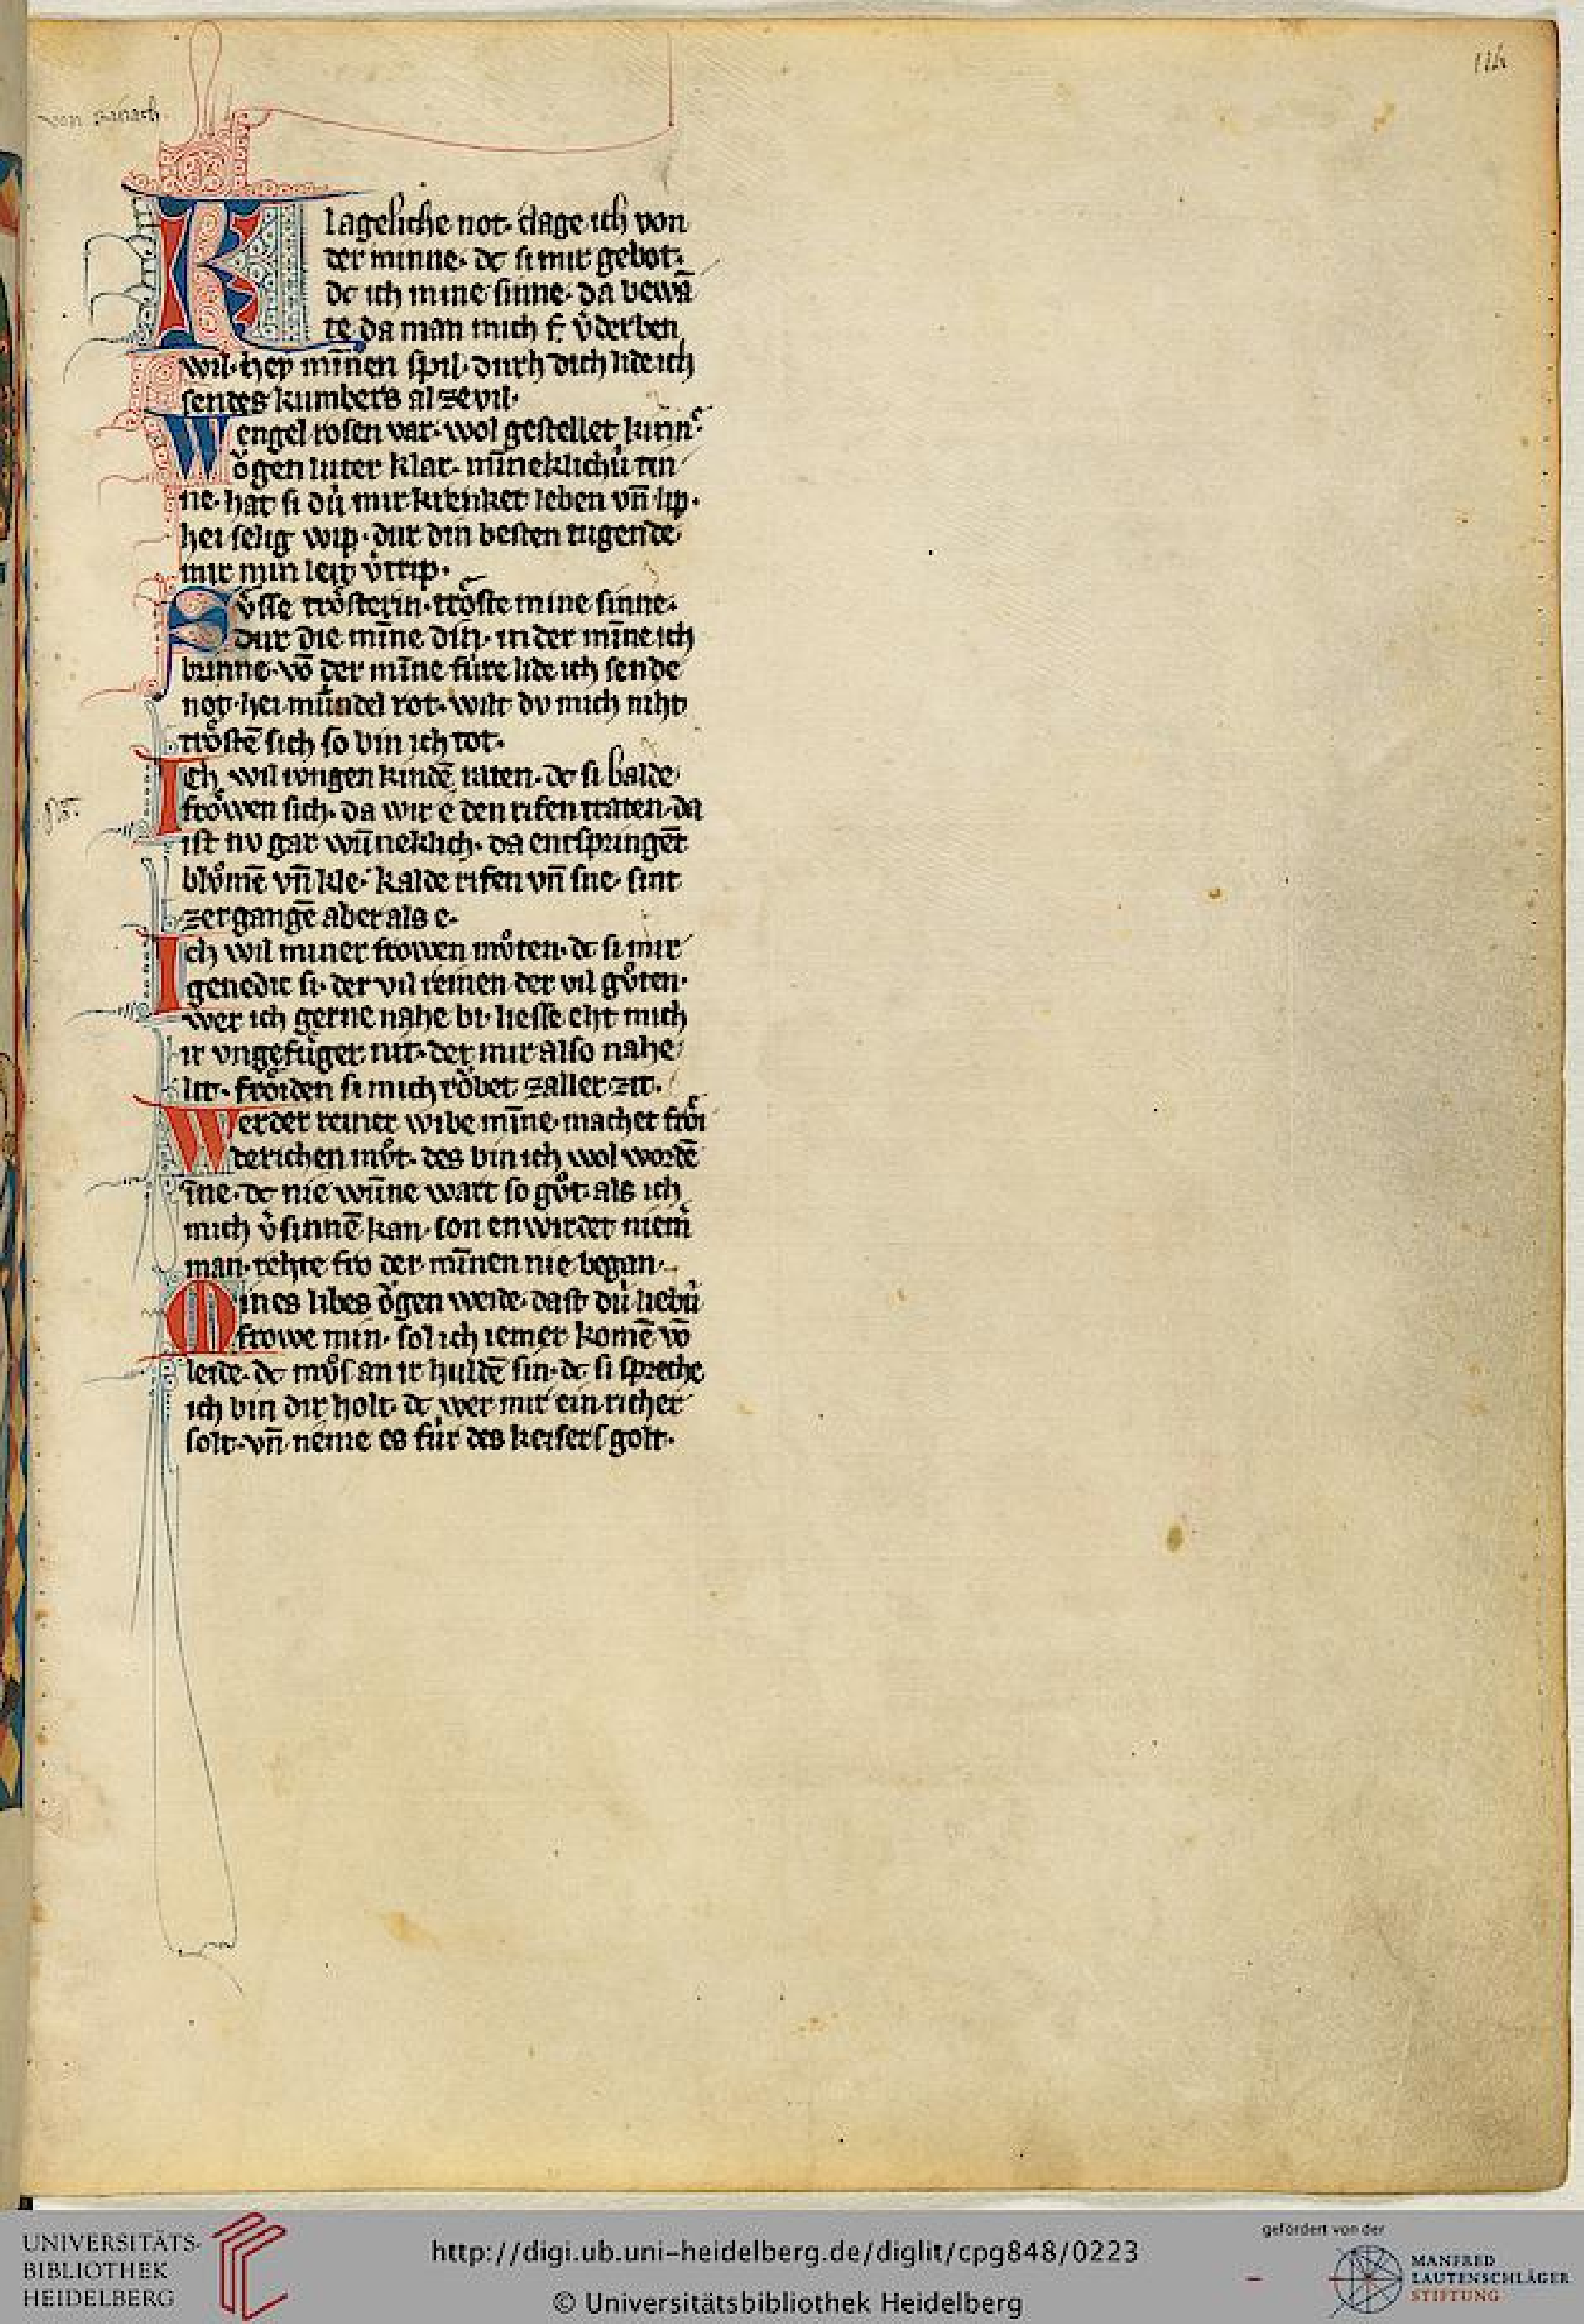 114
von
Klageliche not. clage ich von
der minne. dc si mir gebot.
dc ich mine sinne. da bewā
te da man mich v̾derben
wil. hey miñen spil. durh dich lide ich
sendes kumbers al ze vil.
Wengel rosen var. wol gestellet kinne.
oͮgen luter klar. miñeklichú tin
ne. hat si dú mir krenket leben vn̄ lip.
hei selig wip. dur din besten tugende
mir min leit v̾trip.
Suͤsse troͤsterin. troͤste mine sinne.
dur die miñe din. in der miñe ich
brinne. vō der miñe fúre lide ich sende
not. hei múndel rot. wilt dv mich niht
troͤstē sich so bin ich tot.
Ich wil iungen kindē raten. dc si balde
froͤwen sich. da wir e den rifen traten. da
ist nv gar wūneklich. da entspringēt
blvͦmē vn̄ kle. kalde rifen vn̄ sne. sint
zergangē aber als e.
Ich wil miner frowen mvͦten. dc si mir
genedic si. der vil reinen der vil gvͦten.
wer ich gerne nahe bi. liesse eht mich
ir vngefuͤger nit. der mir also nahe
lit. froͤiden si mich roͮbet zaller zit.
Werder reiner wibe miñe. machet froͤi
derichen mvͦt. des bin ich wol wordē
iñe. dc nie wūne wart so gvͦt. als ich
mich v̾sinnē kan. son enwirdet niem̄
man. rehte fro der miñen nie began.
Mines libes oͮgen weide. dast dú liebú
frowe min. sol ich iemer komē vō
leide. dc mvͦs an ir huldē sin. dc si spreche
ich bin dir holt. dc wer mir ein richer
solt. vn̄ neme es fúr des keisers golt.
UNIVERSITÄTS-
BIBLIOTHEK
HEIDELBERG
http://digi.ub.uni-heidelberg.de/diglit/cpg848/0223
© Universitätsbibliothek Heidelberg
gefördert von der
MANFRED
LAUTENSCHLÄGER
STIFTUNG